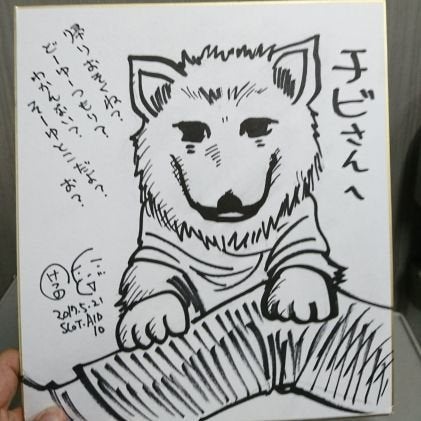 チビさんへ
帰りおそくね？
どーゆーつもり？
わかんない？
そーゆとこだよ？お？
2017.5.21
SCOT.AID
10